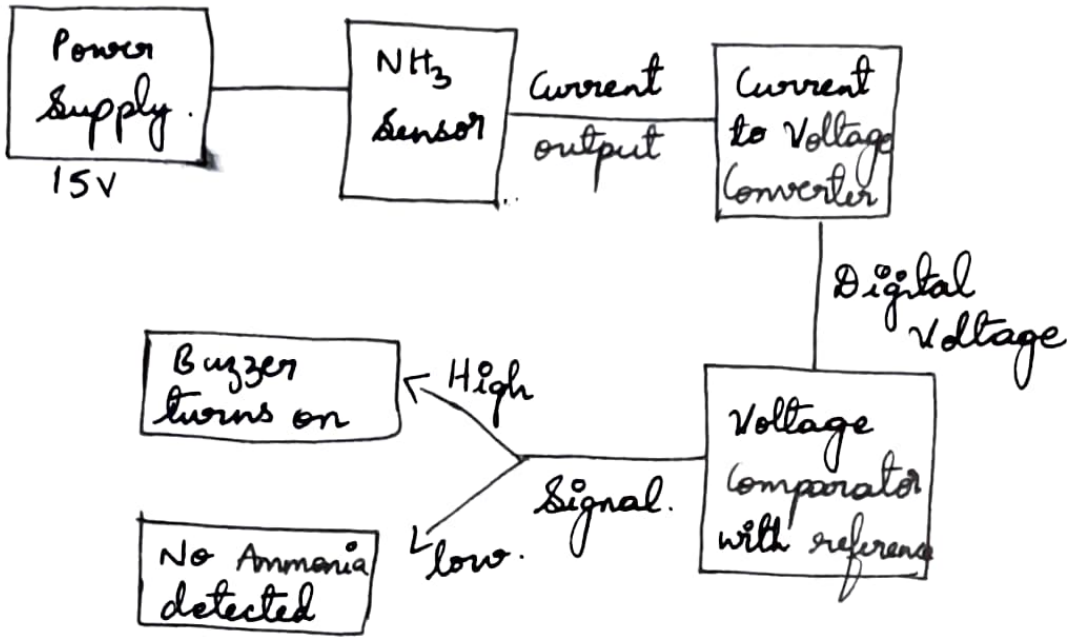 Power
Supply.
15V
NH3
Sensor
Current
output
Current
to Voltage
Converter
Digital
Voltage
Voltage
Comparator
with reference
Signal.
High
low.
Buzzer
turns on
No Ammonia
detected